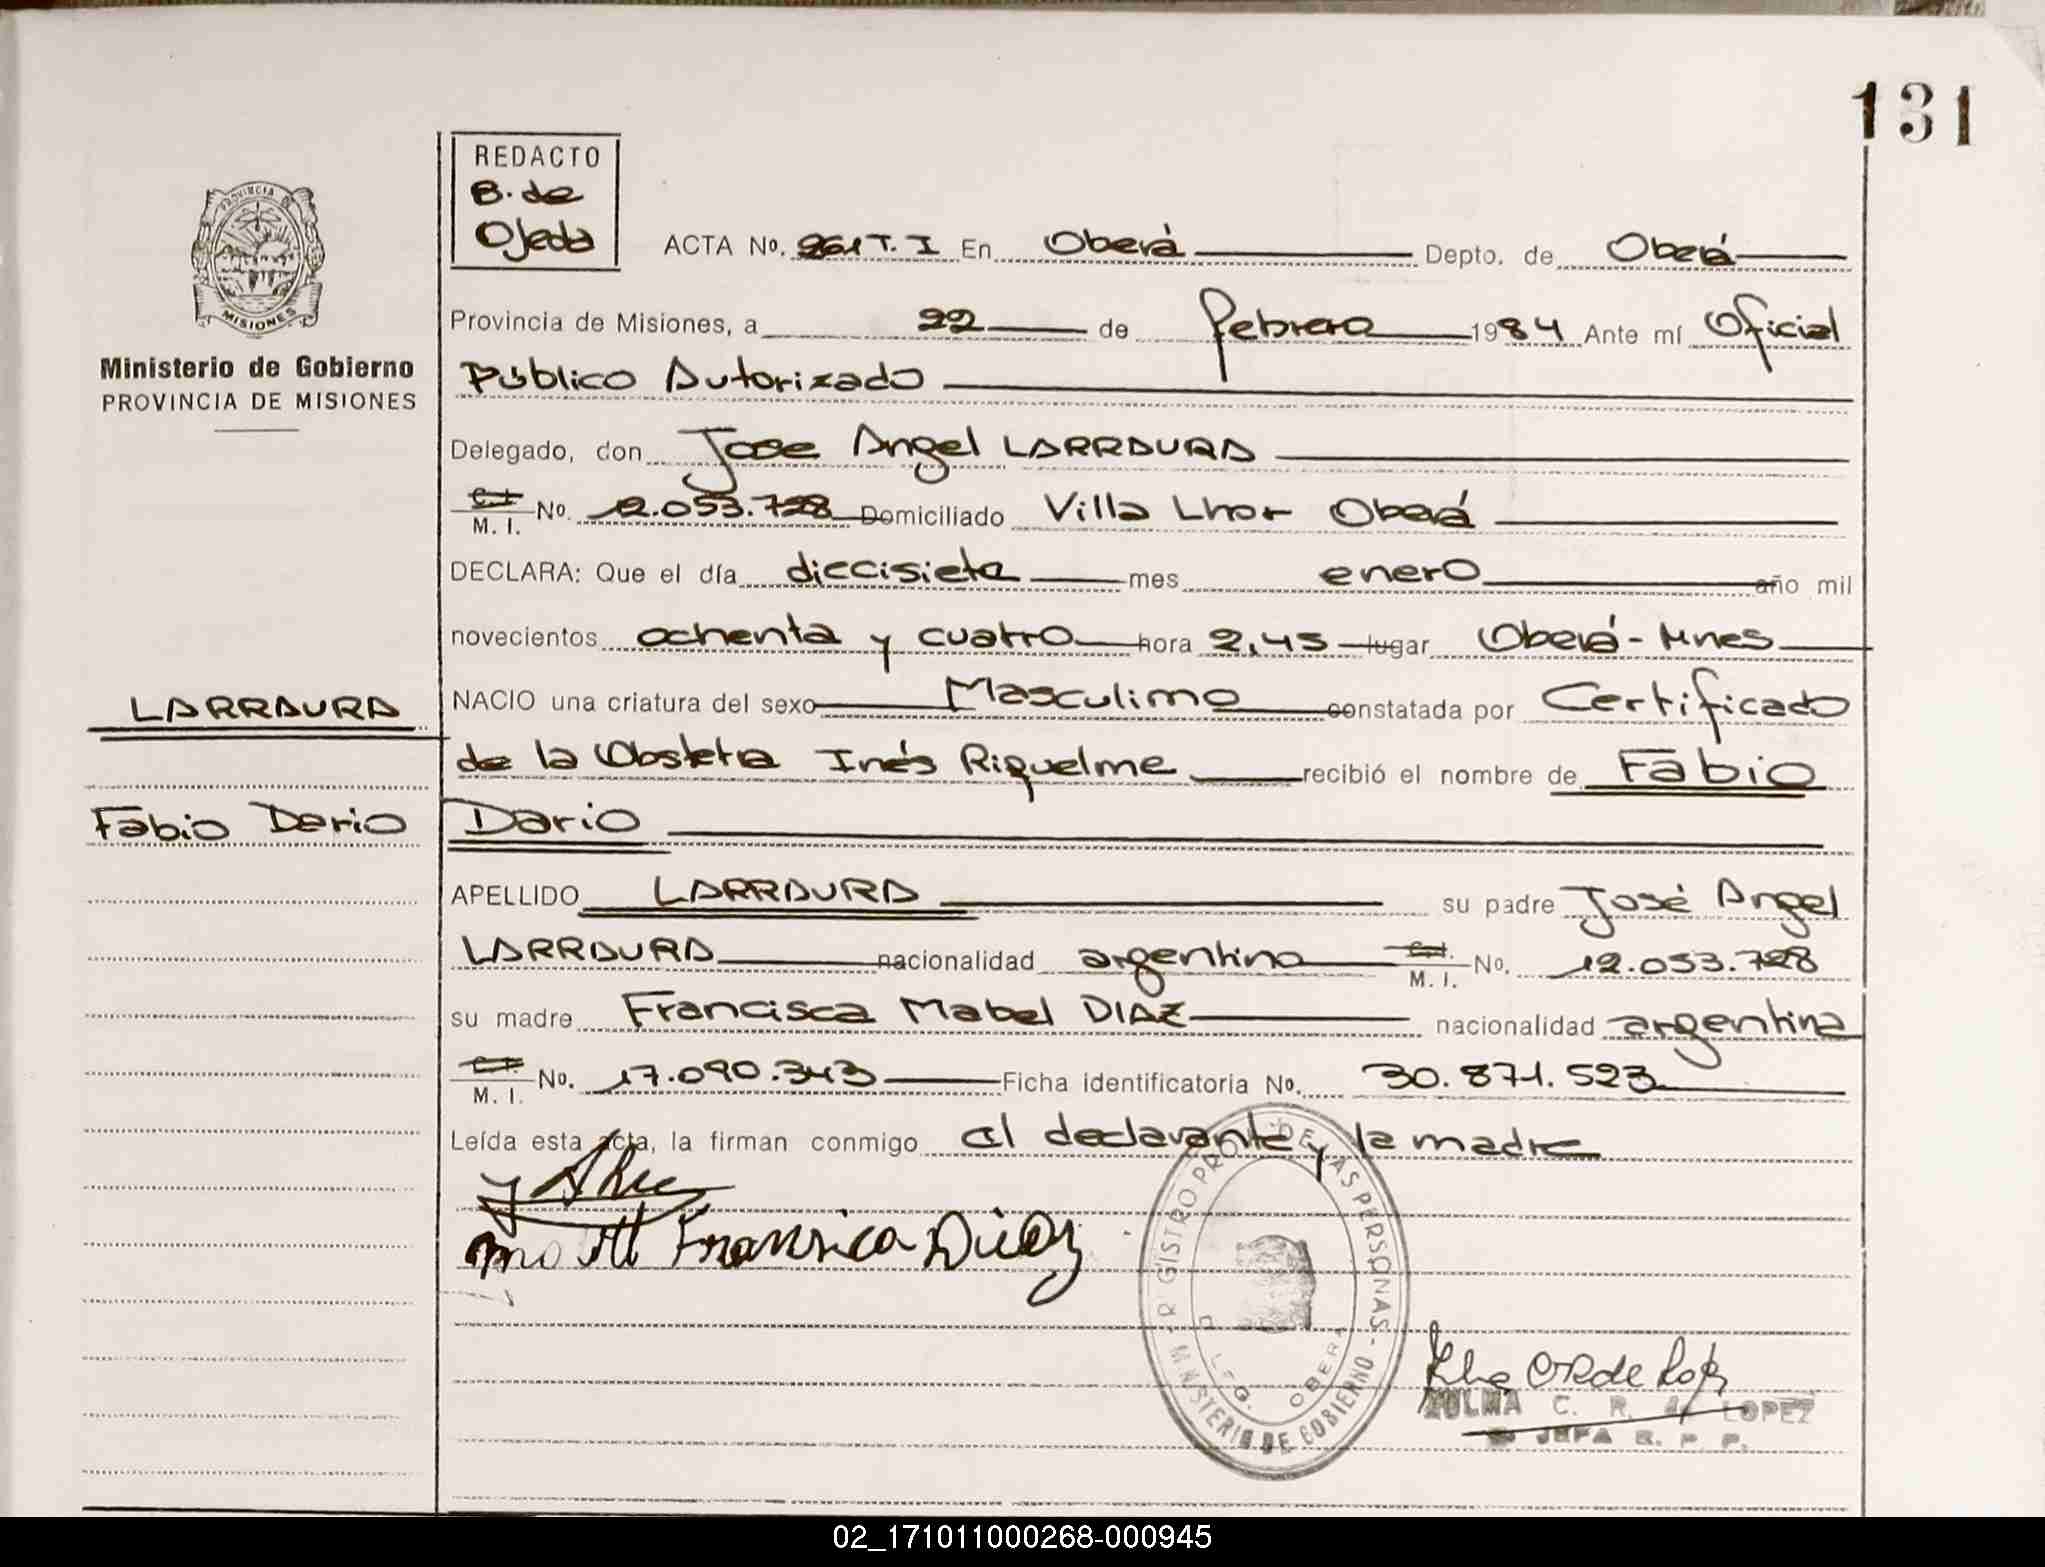 131
REDACTO
B. de
Ojeda
PROVINCIA
MISIONES
Ministerio de Gobierno
PROVINCIA DE MISIONES
ACTA No. 261 T. I En Oberá Depto. de Oberá
Provincia de Misiones, a 22 de febrero 1984 Ante mí Oficial
Público Autorizado
Delegado, don Jose Angel LARRAURA
M. I. No. 12.053.728 Domiciliado Villa Lhor Oberá
DECLARA: Que el día diecisiete mes enero año mil
novecientos ochenta y cuatro hora 2,45 lugar Oberá - Mnes
LARRAURA
NACIO una criatura del sexo Masculino constatada por Certificado
de la Obstetra Inés Riquelme recibió el nombre de Fabio
Fabio Dario
Dario
APELLIDO LARRAURA su padre José Angel
LARRAURA nacionalidad argentina M. I. No. 12.053.728
su madre Francisca Mabel DIAZ nacionalidad argentina
M. I. No. 17.090.343 Ficha identificatoria No. 30.871.523
Leída esta acta, la firman conmigo el declarante y la madre
Francisca Diaz
REGISTRO PROV. DE LAS PERSONAS - MINISTERIO DE GOBIERNO
DELEG. OBERA
ZULMA C. R. de LOPEZ
JEFA R. P. P.
02_171011000268-000945